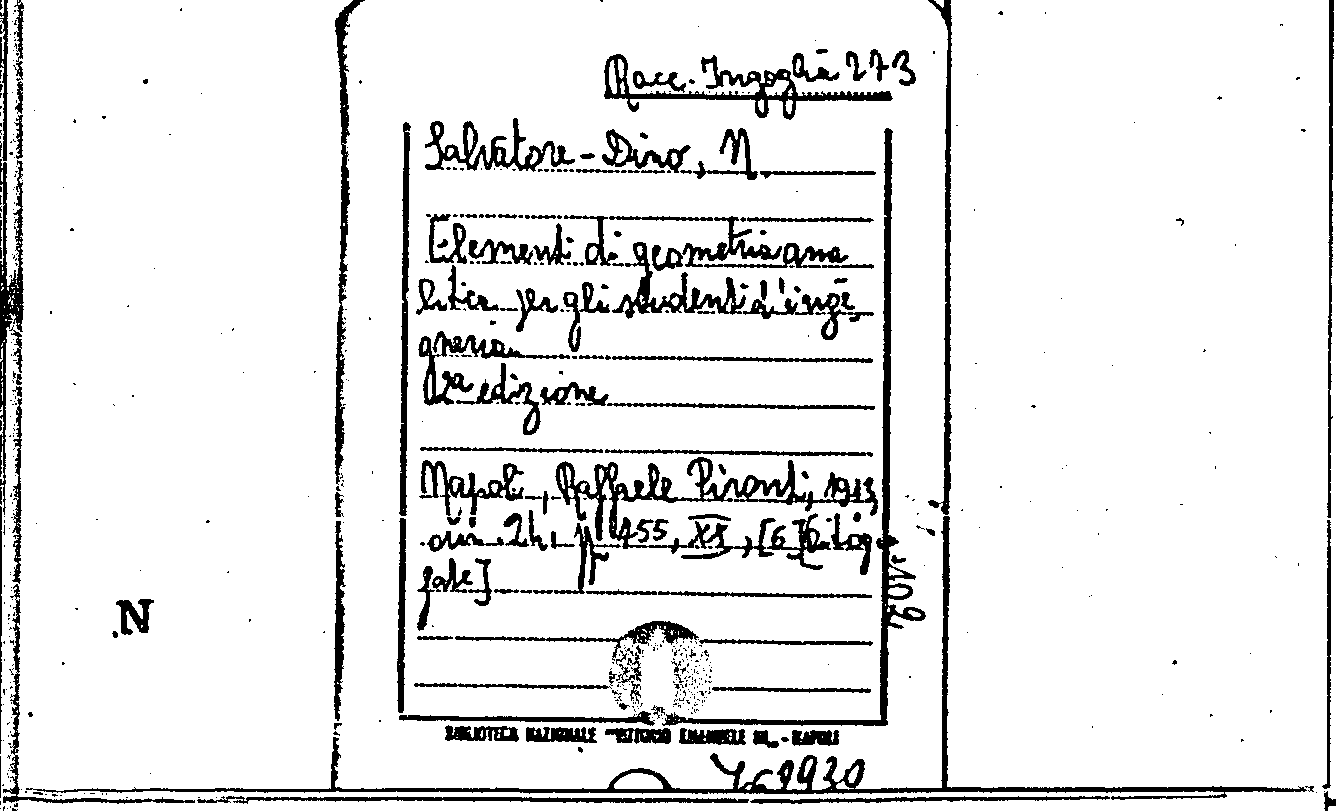 Racc. Ingoglia 273
Salvatore-Dino, N.
Elementi di geometria ana
litica per gli studenti d'inge
gneria
2ª edizione
Napoli, Raffaele Pironti, 1913
cm. 24, pp 455, XX, [6] [Litogra
fate]
N
BIBLIOTECA NAZIONALE "VITTORIO EMANUELE III" - NAPOLI